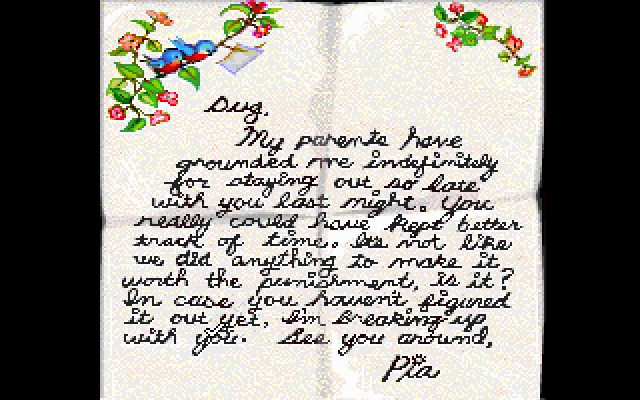 Dug,
My parents have
grounded me indefinitely
for staying out so late
with you last night. You
really could have kept better
track of time. It's not like
we did anything to make it
worth the punishment, is it?
In case you haven't figured
it out yet, I'm breaking up
with you. See you around,
Pia